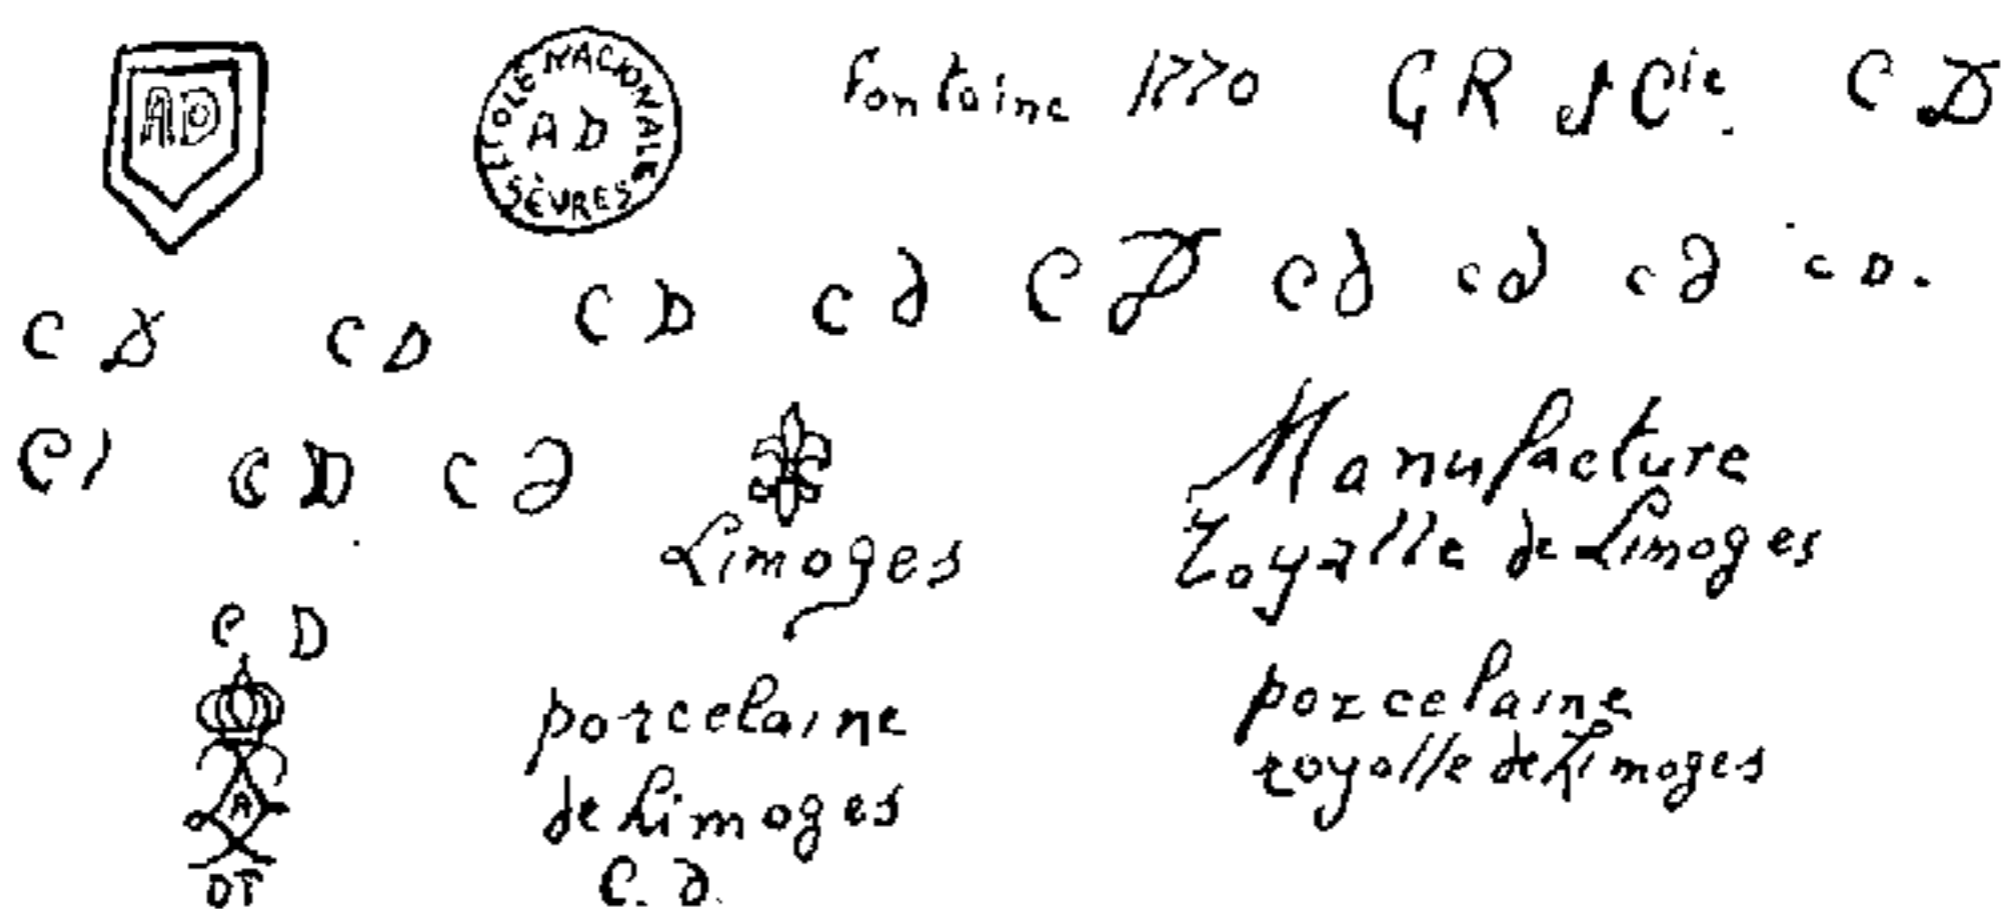 AD
ECOLE NACIONALE
AD
SÈVRES
Fontaine 1770
GR et Cie.
C D
C D
C D
C D
c d
C D
c d
c d
c d
c D.
C D
c d
Limoges
Manufacture
royalle de Limoges
C D
A
DT
porcelaine
de Limoges
C. d.
porcelaine
royalle de Limoges